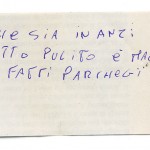 HE SIA INANZI
TTO PULITO É MA
FATTI PARCHEGI